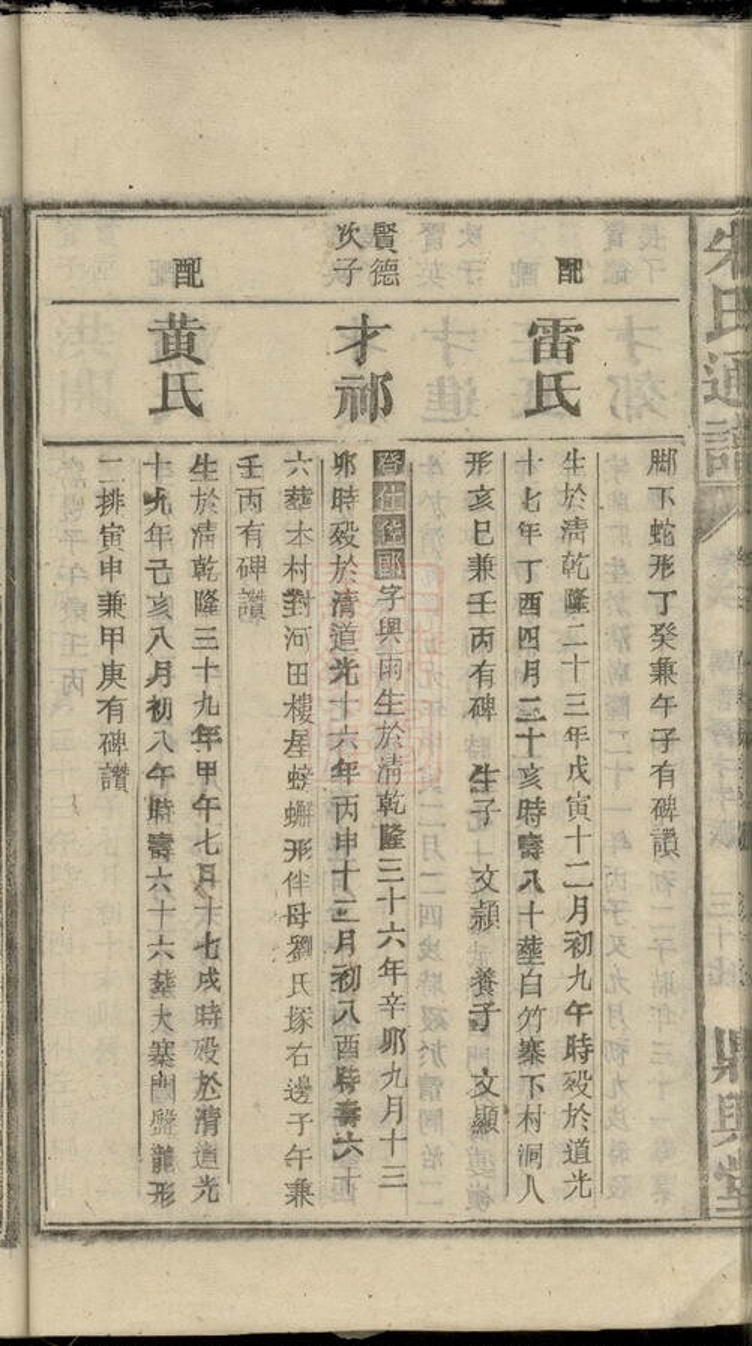 氏通譜
三十七
興堂
脚下蛇形丁癸兼午子有碑讚
配
雷氏
生於清乾隆二十三年戊寅十二月初九午時殁於道光
十七年丁酉四月二十亥時壽八十塟白竹寨下村洞人
形亥巳兼壬丙有碑 生子 文顯 養子 文顯
賢德
次子
才祁
登仕佐郎字興雨生於清乾隆三十六年辛卯九月十三
卯時殁於清道光十六年丙申十二月初八酉時壽六十
六塟本村對河田樓屋螃蠏形伴母劉氏塚右邊子午兼
壬丙有碑讚
配
黄氏
生於清乾隆三十九年甲午七月十七戌時殁於清道光
十九年己亥八月初八午時壽六十六塟大寨盤龍形
二排寅申兼甲庚有碑讚